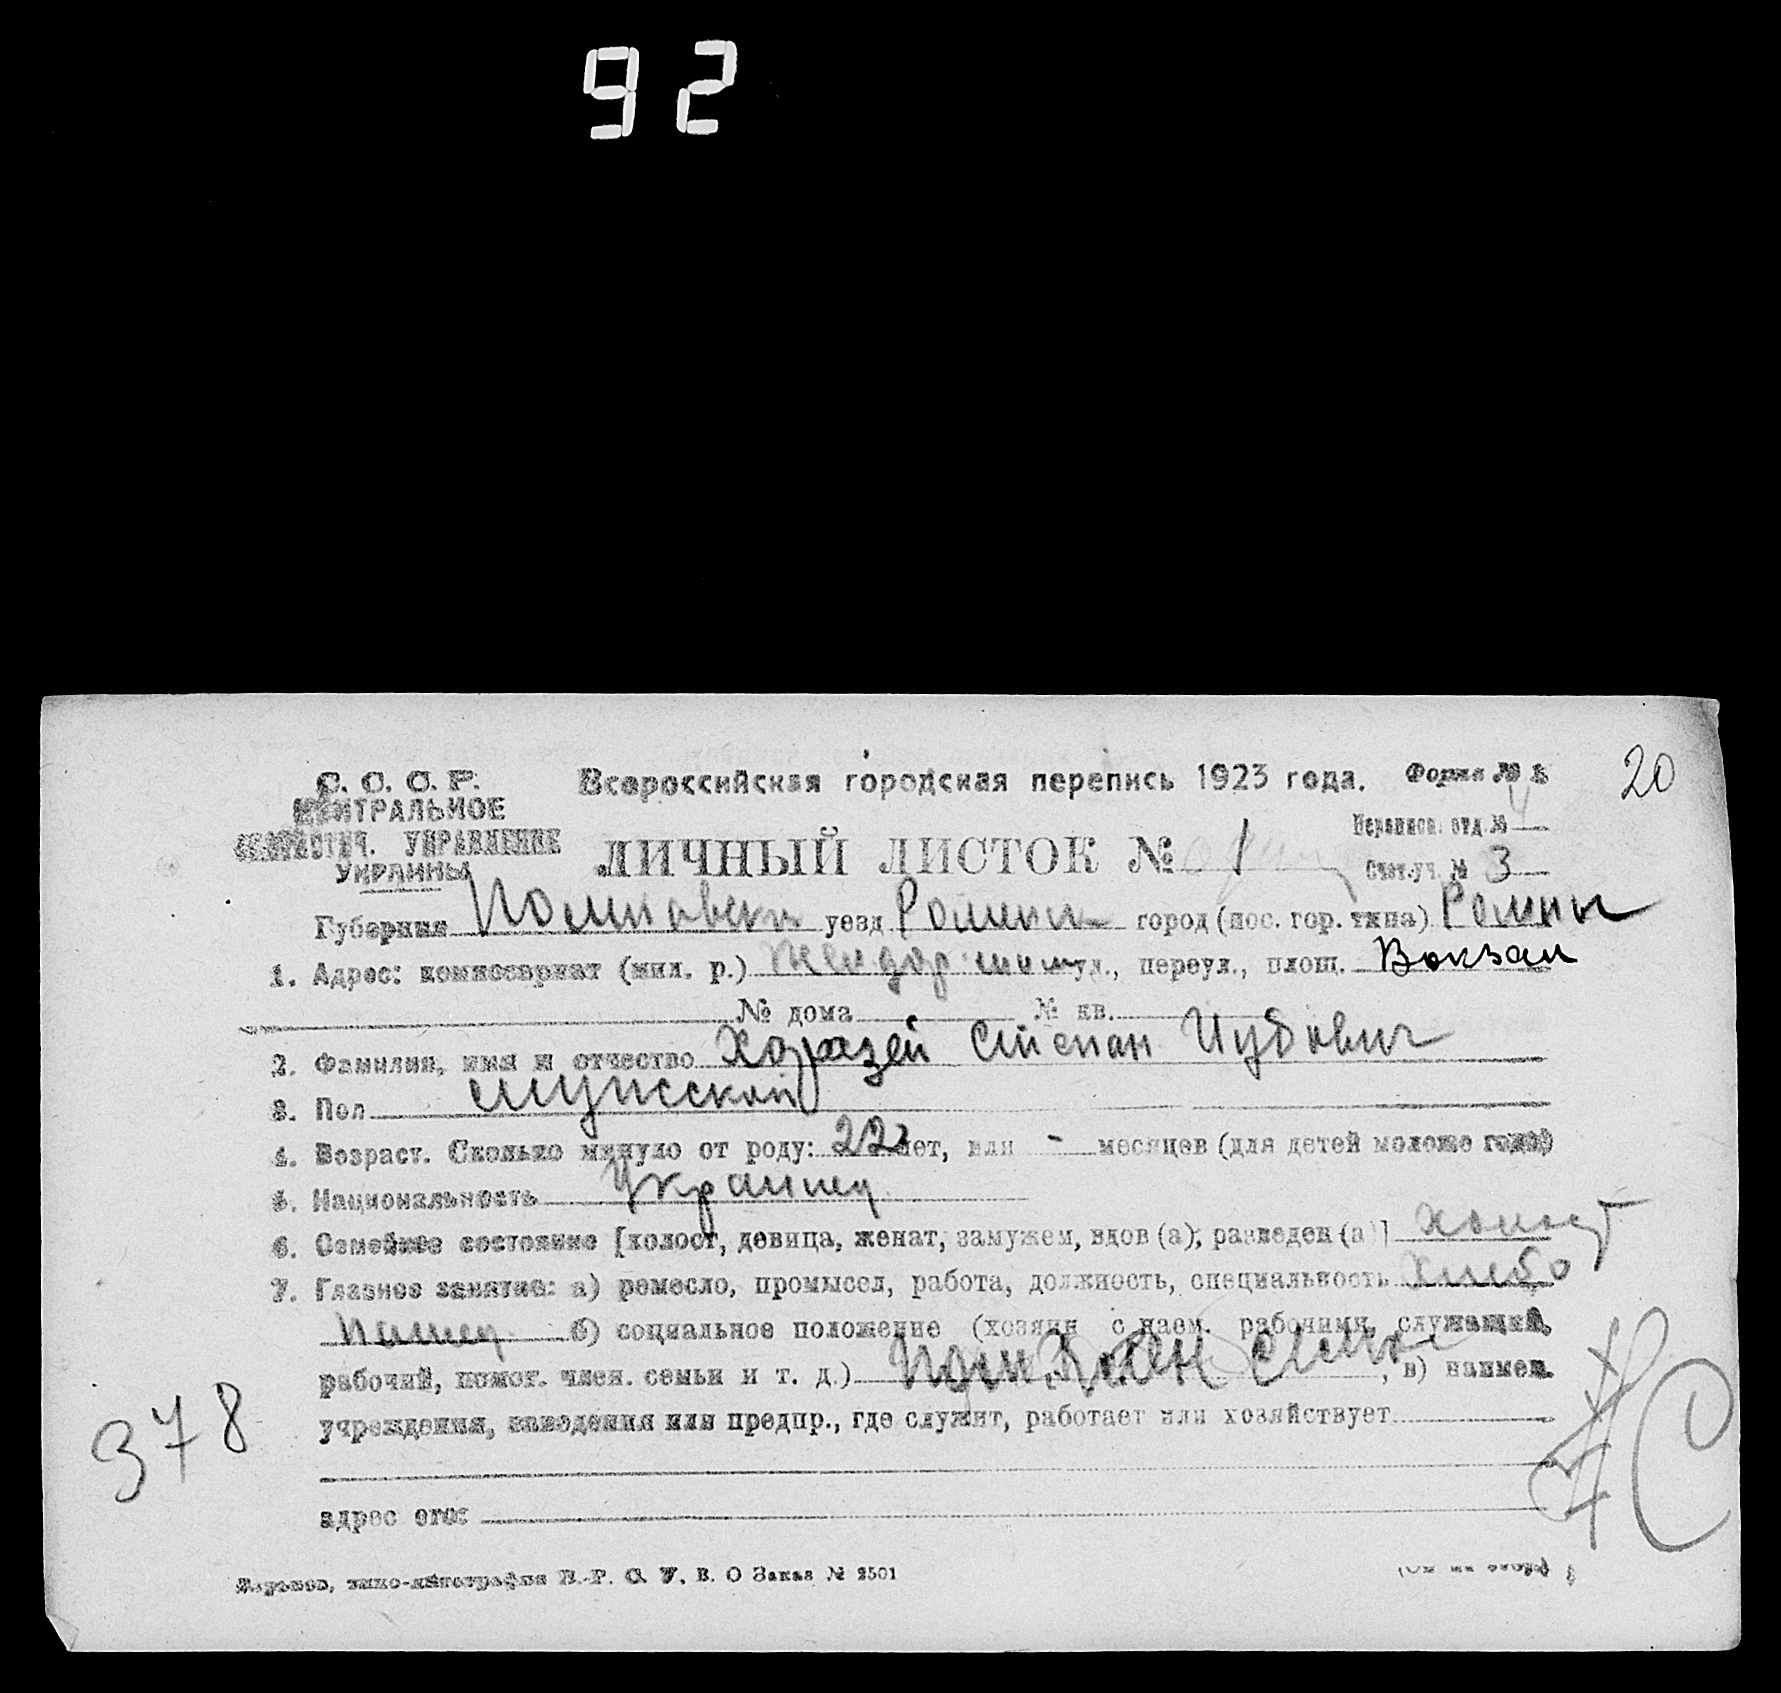 92
20
С. С. С. Р.
ЦЕНТРАЛЬНОЕ
СТАТИСТИЧ. УПРАВЛЕНИЕ
УКРАИНЫ
Всероссийская городская перепись 1923 года.
Форма № 2
ЛИЧНЫЙ ЛИСТОК № 1
Переписн. отд. № 4
Счетч. уч. № 3
Губерния Полтавск уезд Роменск город (пос. гор. типа) Ромны
1. Адрес: комиссариат (мил. р.) ул., переул., площ. Вокзал
№ дома № кв.
2. Фамилия, имя и отчество Степан
3. Пол мужской
4. Возраст. Сколько минуло от роду: 22 лет, или - месяцев (для детей моложе года)
5. Национальность Украинец
6. Семейное состояние [холост, девица, женат, замужем, вдов (а), разведен (а)] холост
7. Главное занятие: а) ремесло, промысел, работа, должность, специальность Хлебо
пашец б) социальное положение (хозяин с наем. рабочими, служащий,
рабочий, помог. член. семьи и т. д.) член семьи, в) наимен.
учреждения, заведения или предпр., где служит, работает или хозяйствует
адрес его:
378
Харьков, типо-литография В. О Заказ № 2501